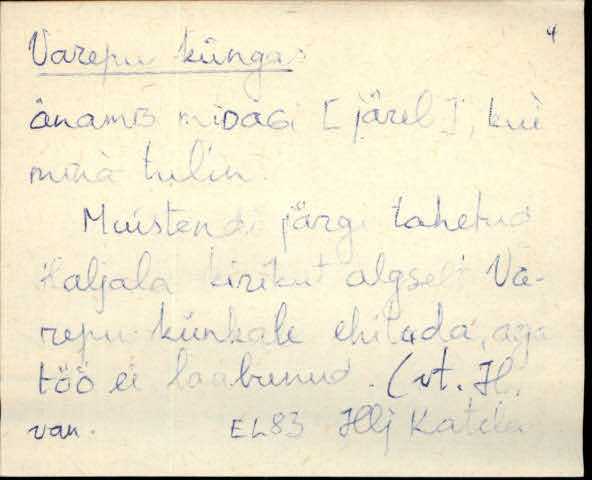 4
Varepu küngas
änamb midagi [järel], kui
minä tulin.
Muistendi järgi tahetud
Haljala kirikut algselt Va-
repu künkale ehitada, aga
töö ei laabunud. (vt. H.
van. EL83 Hlj Katela